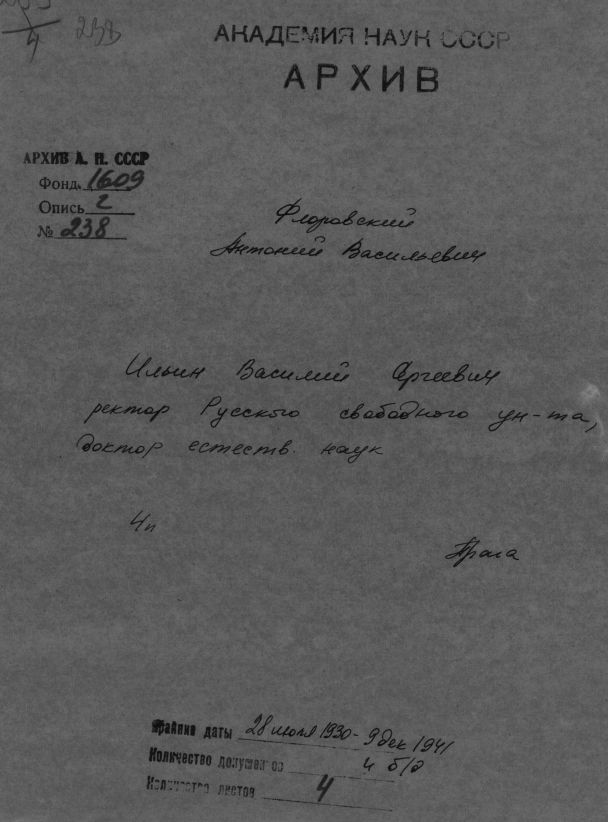 4
233
АКАДЕМИЯ НАУК СССР
АРХИВ
АРХИВ А. Н. СССР
Фонд 1609
Опись 2
№ 238
Флоровский
Антоний Васильевич
Ильин Василий Сергеевич
ректор Русского свободного ун-та,
доктор естеств. наук
4п
Прага
Крайние даты 28 июля 1930 - 9 дек 1941
Количество документов 4 б/д
Количество листов 4